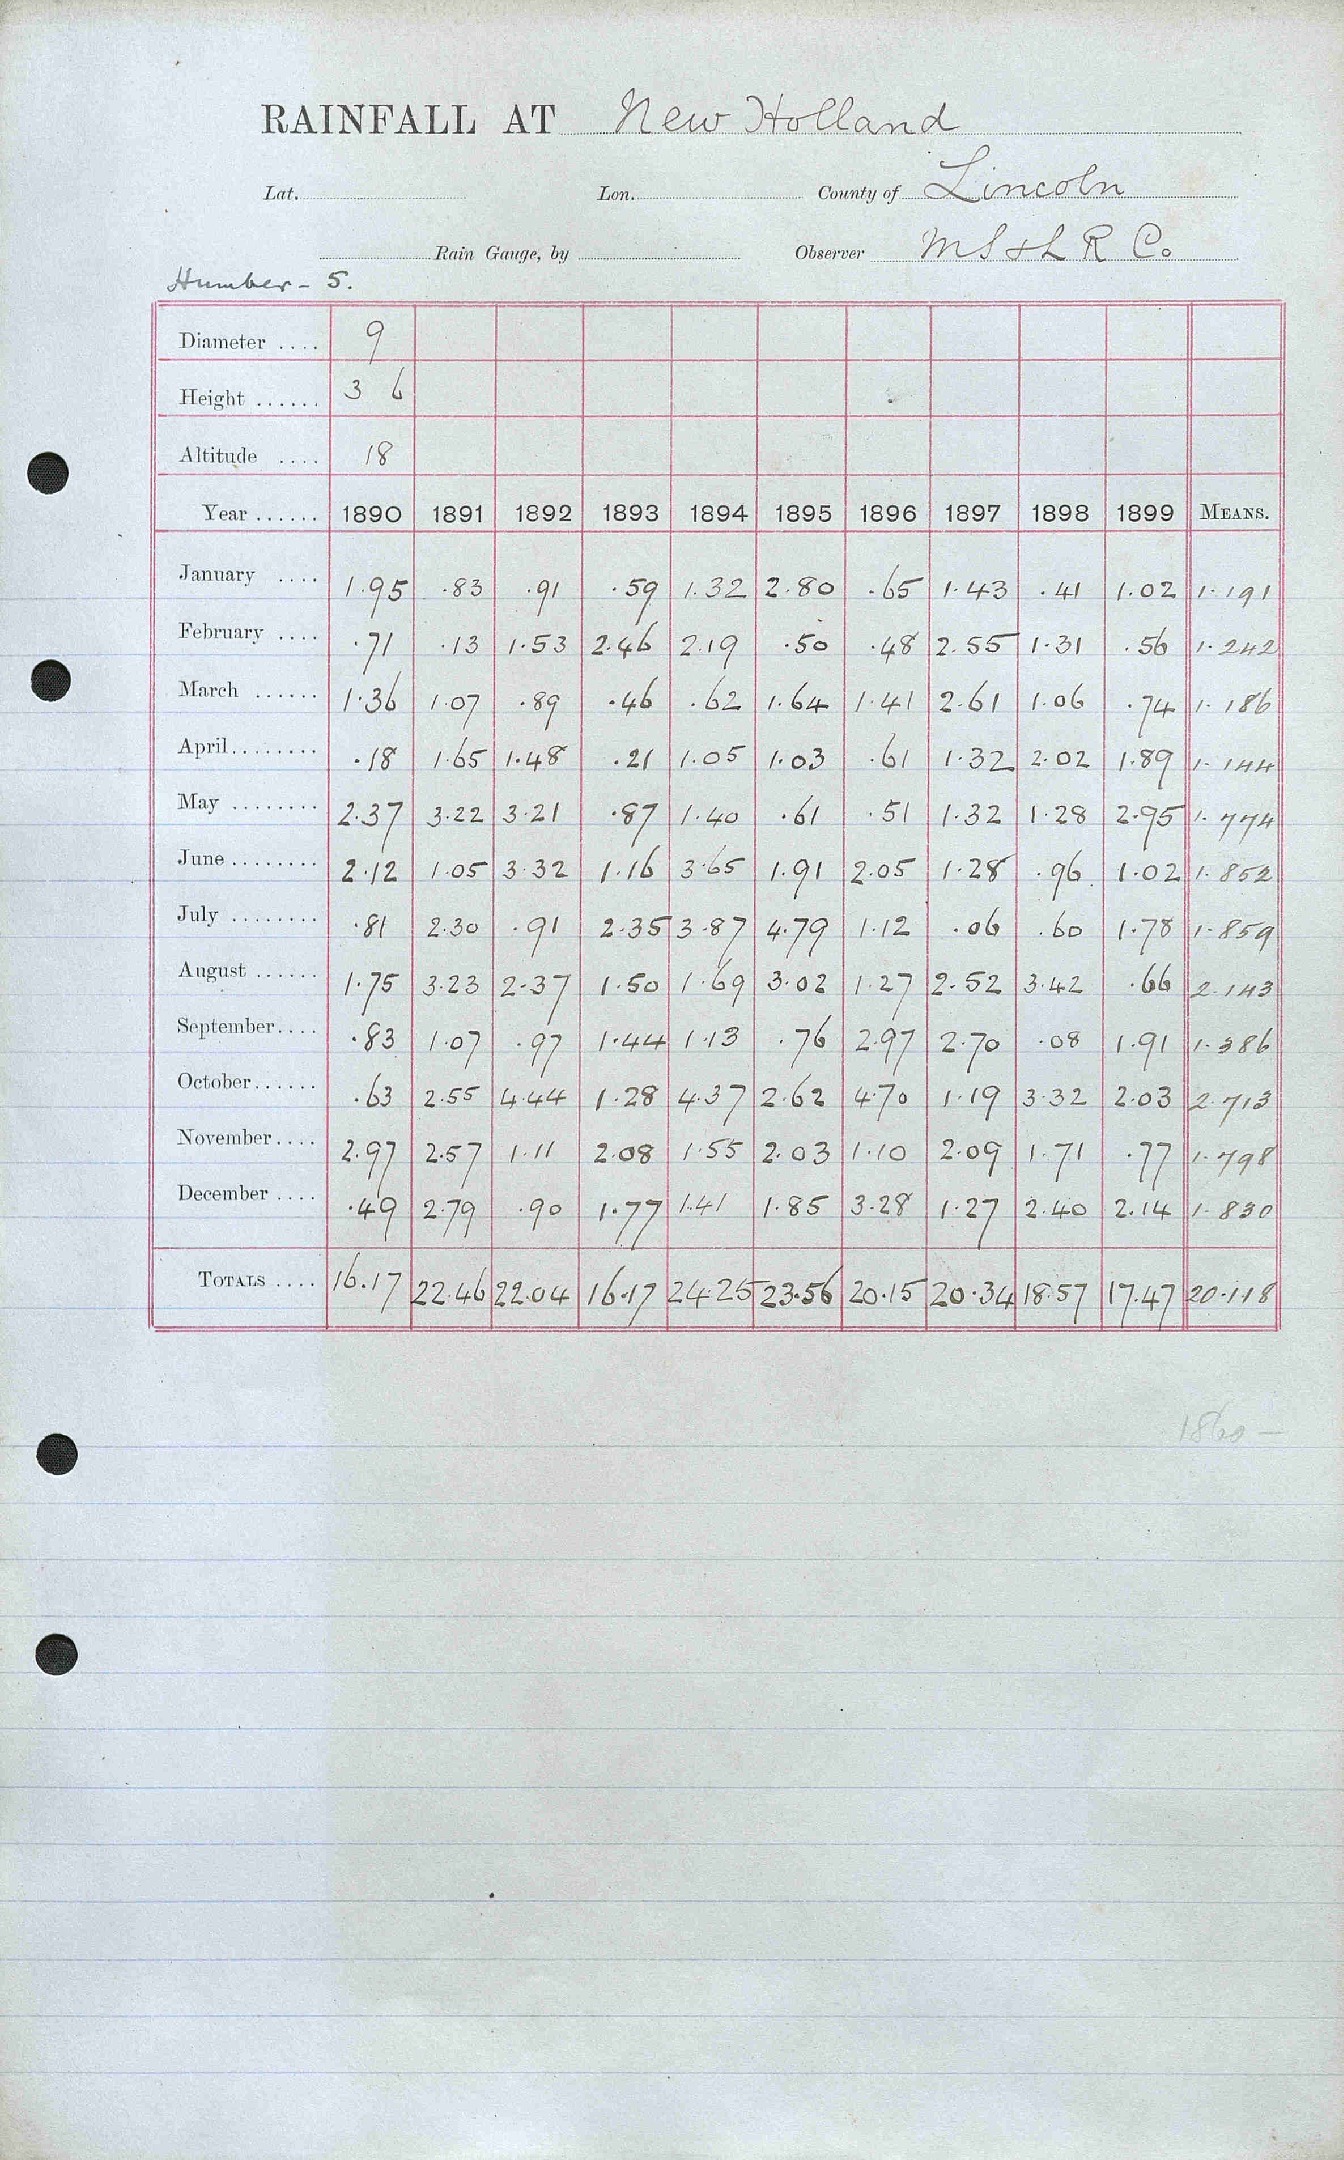 RAINFALL AT New Holland
Lat. Lon. County of Lincoln
Rain Gauge, by Observer M S & L R Co.
Humber - 5.
Diameter .... 9
Height ...... 3 6
Altitude .... 18
Year ...... 1890 1891 1892 1893 1894 1895 1896 1897 1898 1899 MEANS.
January .... 1.95 .83 .91 .59 1.32 2.80 .65 1.43 .41 1.02 1.191
February .... .71 .13 1.53 2.46 2.19 .50 .48 2.55 1.31 .56 1.242
March ...... 1.36 1.07 .89 .46 .62 1.64 1.41 2.61 1.06 .74 1.186
April........ .18 1.65 1.48 .21 1.05 1.03 .61 1.32 2.02 1.89 1.144
May ........ 2.37 3.22 3.21 .87 1.40 .61 .51 1.32 1.28 2.95 1.774
June ........ 2.12 1.05 3.32 1.16 3.65 1.91 2.05 1.28 .96 1.02 1.852
July ........ .81 2.30 .91 2.35 3.87 4.79 1.12 .06 .60 1.78 1.859
August ...... 1.75 3.23 2.37 1.50 1.69 3.02 1.27 2.52 3.42 .66 2.143
September.... .83 1.07 .97 1.44 1.13 .76 2.97 2.70 .08 1.91 1.386
October...... .63 2.55 4.44 1.28 4.37 2.62 4.70 1.19 3.32 2.03 2.713
November.... 2.97 2.57 1.11 2.08 1.55 2.03 1.10 2.09 1.71 .77 1.798
December .... .49 2.79 .90 1.77 1.41 1.85 3.28 1.27 2.40 2.14 1.830
TOTALS .... 16.17 22.46 22.04 16.17 24.25 23.56 20.15 20.34 18.57 17.47 20.118
1860 -